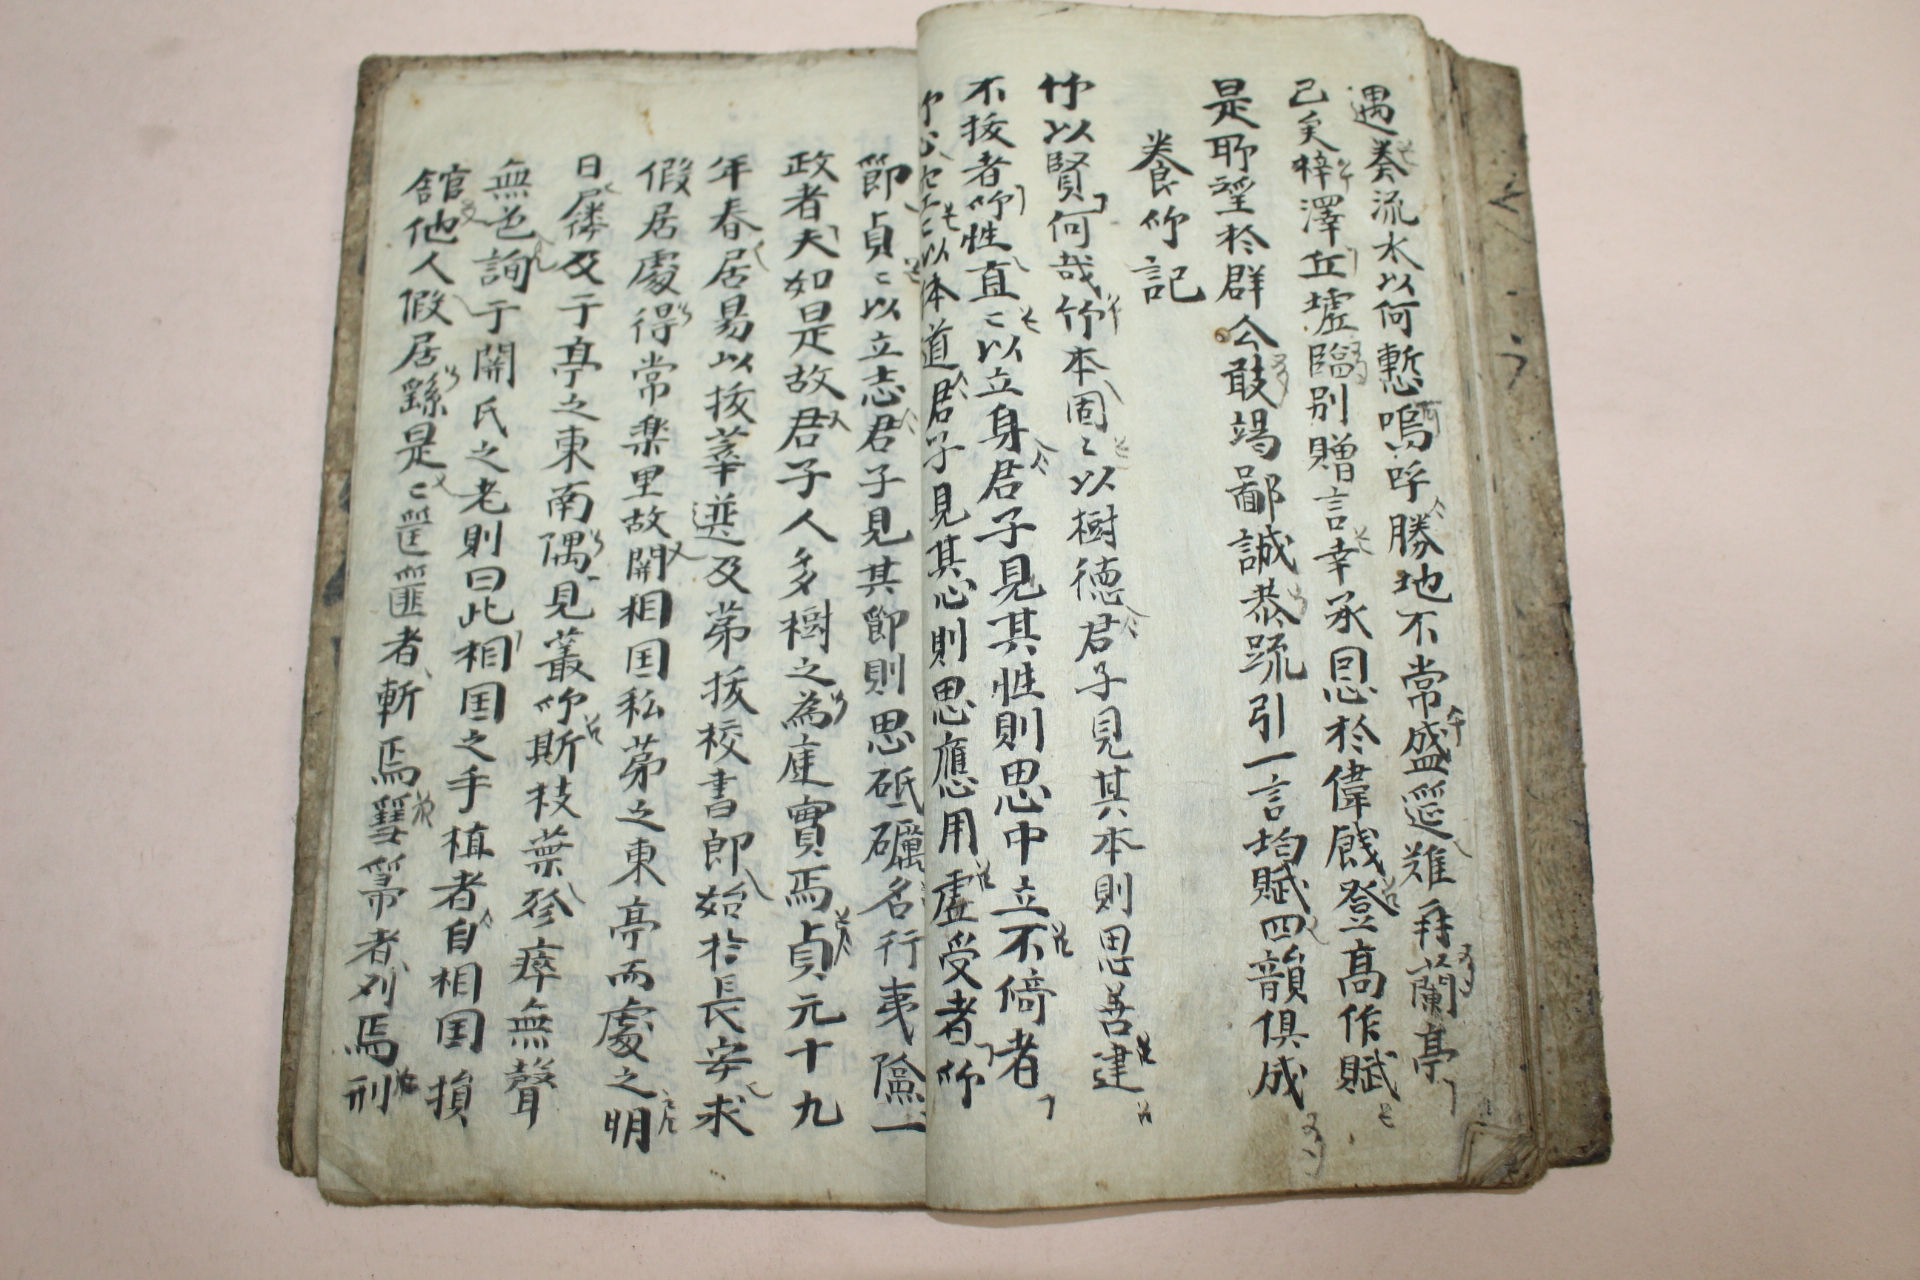 遇奏流水以何慙嗚呼勝地不常盛筵難再蘭亭
已矣梓澤丘墟臨別贈言幸承恩於偉餞登高作賦
是所望於群公敢竭鄙誠恭疏引一言均賦四韻俱成
養竹記
竹以賢何哉竹本固〻以樹德君子見其本則思善建
不拔者竹性直〻以立身君子見其性則思中立不倚者
竹心空〻以体道君子見其心則思應用虛受者竹
節貞〻以立志君子見其節則思砥礪名行夷險一
政者夫如是故君子人多樹之為庭實焉貞元十九
年春居易以拔萃選及第授校書郎始於長安求
假居處得常楽里故関相囯私苐之東亭而處之明
日屨及于亭之東南隅見叢竹斯枝葉殄瘁無聲
無色詢于関氏之老則曰此相囯之手植者自相囯捐
舘他人假居繇是〻筐篚者斬焉篲箒者刈焉刑